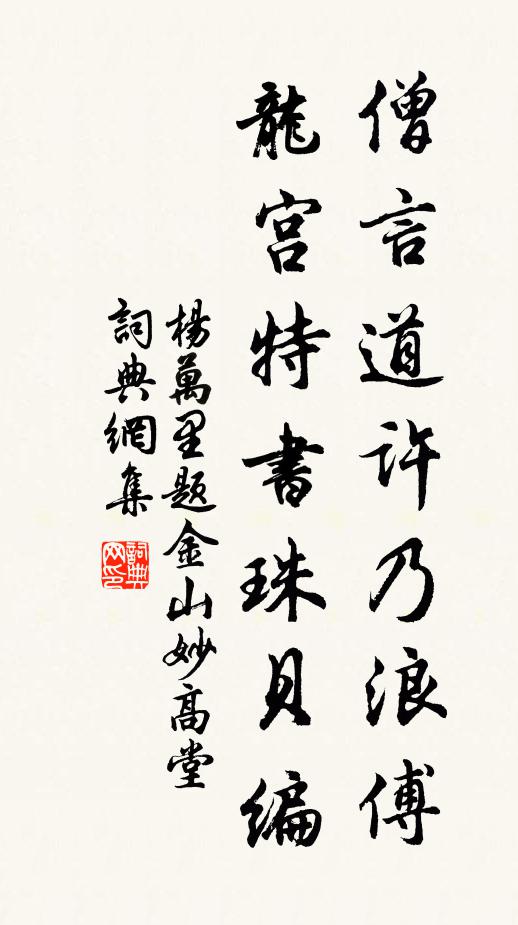 僧言道許乃浪傅
龍宮特書珠貝編
楊萬里題金山妙高堂
詞典網集
詞典
网印